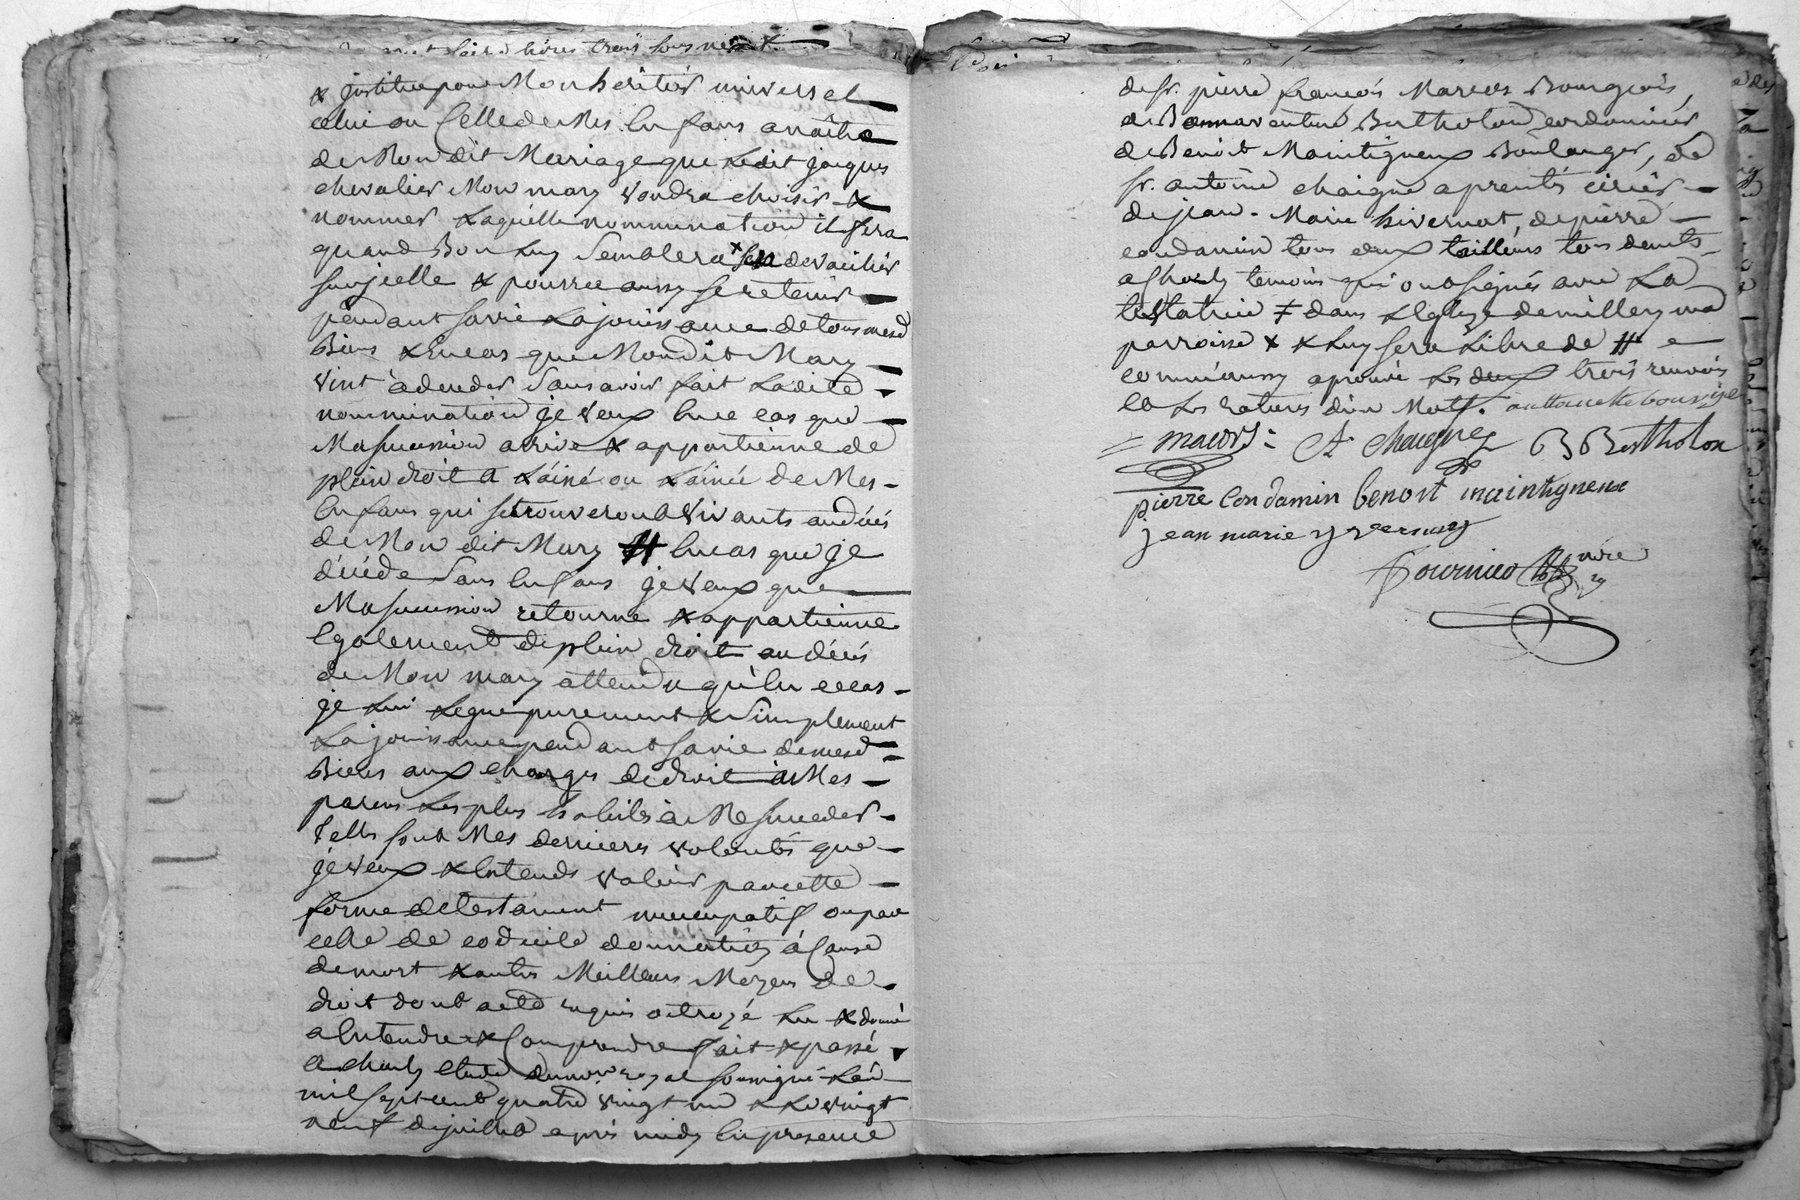 & institue pour Mon heritier universel
celui ou Celle de Mes Enfans a naitre
de Mon dit Mariage que Ledit jacques
chevalier Mon mary voudra choisir &
nommer Laquelle nommination il fera
quand Bon Luy Semblera
& pourra aussy se retenir
pendant sa vie La jouissance de tous mesd
Biens & En cas que Mondit Mary
vint à deceder Sans avoir fait Ladite
nommination je veux En ce cas que
Ma succession arrive & appartienne de
plein droit a L'ainé ou L'ainée de Mes
Enfans qui se trouveront vivants au décés
de Mon dit Mary # En cas que je
décéde Sans Enfans je veux que
Ma succession retourne & appartienne
Egalement de plein droit au décés
de Mon mary attendu qu'En ce cas
je Lui Legue purement & Simplement
La jouissance pendant sa vie de mesd
Biens aux charges de droit à Mes
parens Les plus habiles à Me succeder
Telles sont Mes dernieres volontés que
je veux & Entends valoir par cette
forme de testament nuncupatif ou par
celle de codicile donnation à Cause
de mort & autres Meilleurs Moyens de
droit dont acte requis octroyé Lu & donné
a Entendre & Comprendre fait & passé
a charly Etude du no.re royal soussigné L'an
mil sept cent quatre vingt un & Le vingt
neuf de juillet apres midy En presence
de sr. pierre françois Marcors Bourgeois,
de Bonnaventure Bertholon cordonnier
de Benoit Maintigneux Boulanger, de
sr. antoine chaigne aprentis cirier
de jean-Marie hivernat, de pierre
condamin tous deux tailleurs tous demts
a Charly temoins qui ont signés avec La
testatrice ≠ dans L'Eglize de millery ma
parroisse x & Luy sera Libre de #
comme aussy aprouvé Les deux trois renvois
et Les ratures d'un Mot.
marors A chaigne B Bertholon
pierre Condamin benoit maintigneux
jean marie yvernay
Fournier no.re